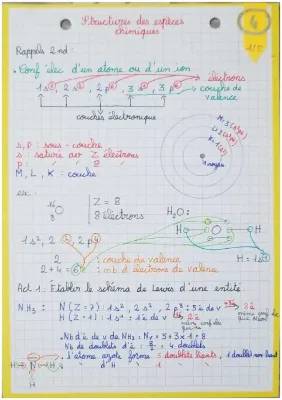 Structures des espèces
chimiques
4
1/2
Rappels 2nd :
Conf° élec d'un atome ou d'un ion
électrons
1s②, 2s②, 2p⑥, 3s②, 3p⑥
couche de
valence
couches électronique
M: 3 (s,p)
L: 2 (s,p)
K: 1 (s)
noyau
s, p : sous-couche
s : saturé av 2 électrons
p : " à 6 "
M, L, K : couche
ex :
16
8
O
Z = 8
8 électrons
H₂O :
H O H
1s², 2s②, 2p④
H : 1s①
2 : couche de valence
2 + 4 = ⑥ : nb d'électrons de valence
Act 1 : Établir le schéma de Lewis d'une entité
NH₃ : N (Z=7) : 1s², 2s², 2p³ : 5é de v
H (Z=1) : 1s¹ : 1é v
Nb d'é de v de NH₃ : Nv = 5+3x1 = 8
Nb de doublets d'é : 8/2 = 4 doublets
L'atome azote forme 3 doublets liants, 1 doublet non liant
H N H
" d'H " 1 "